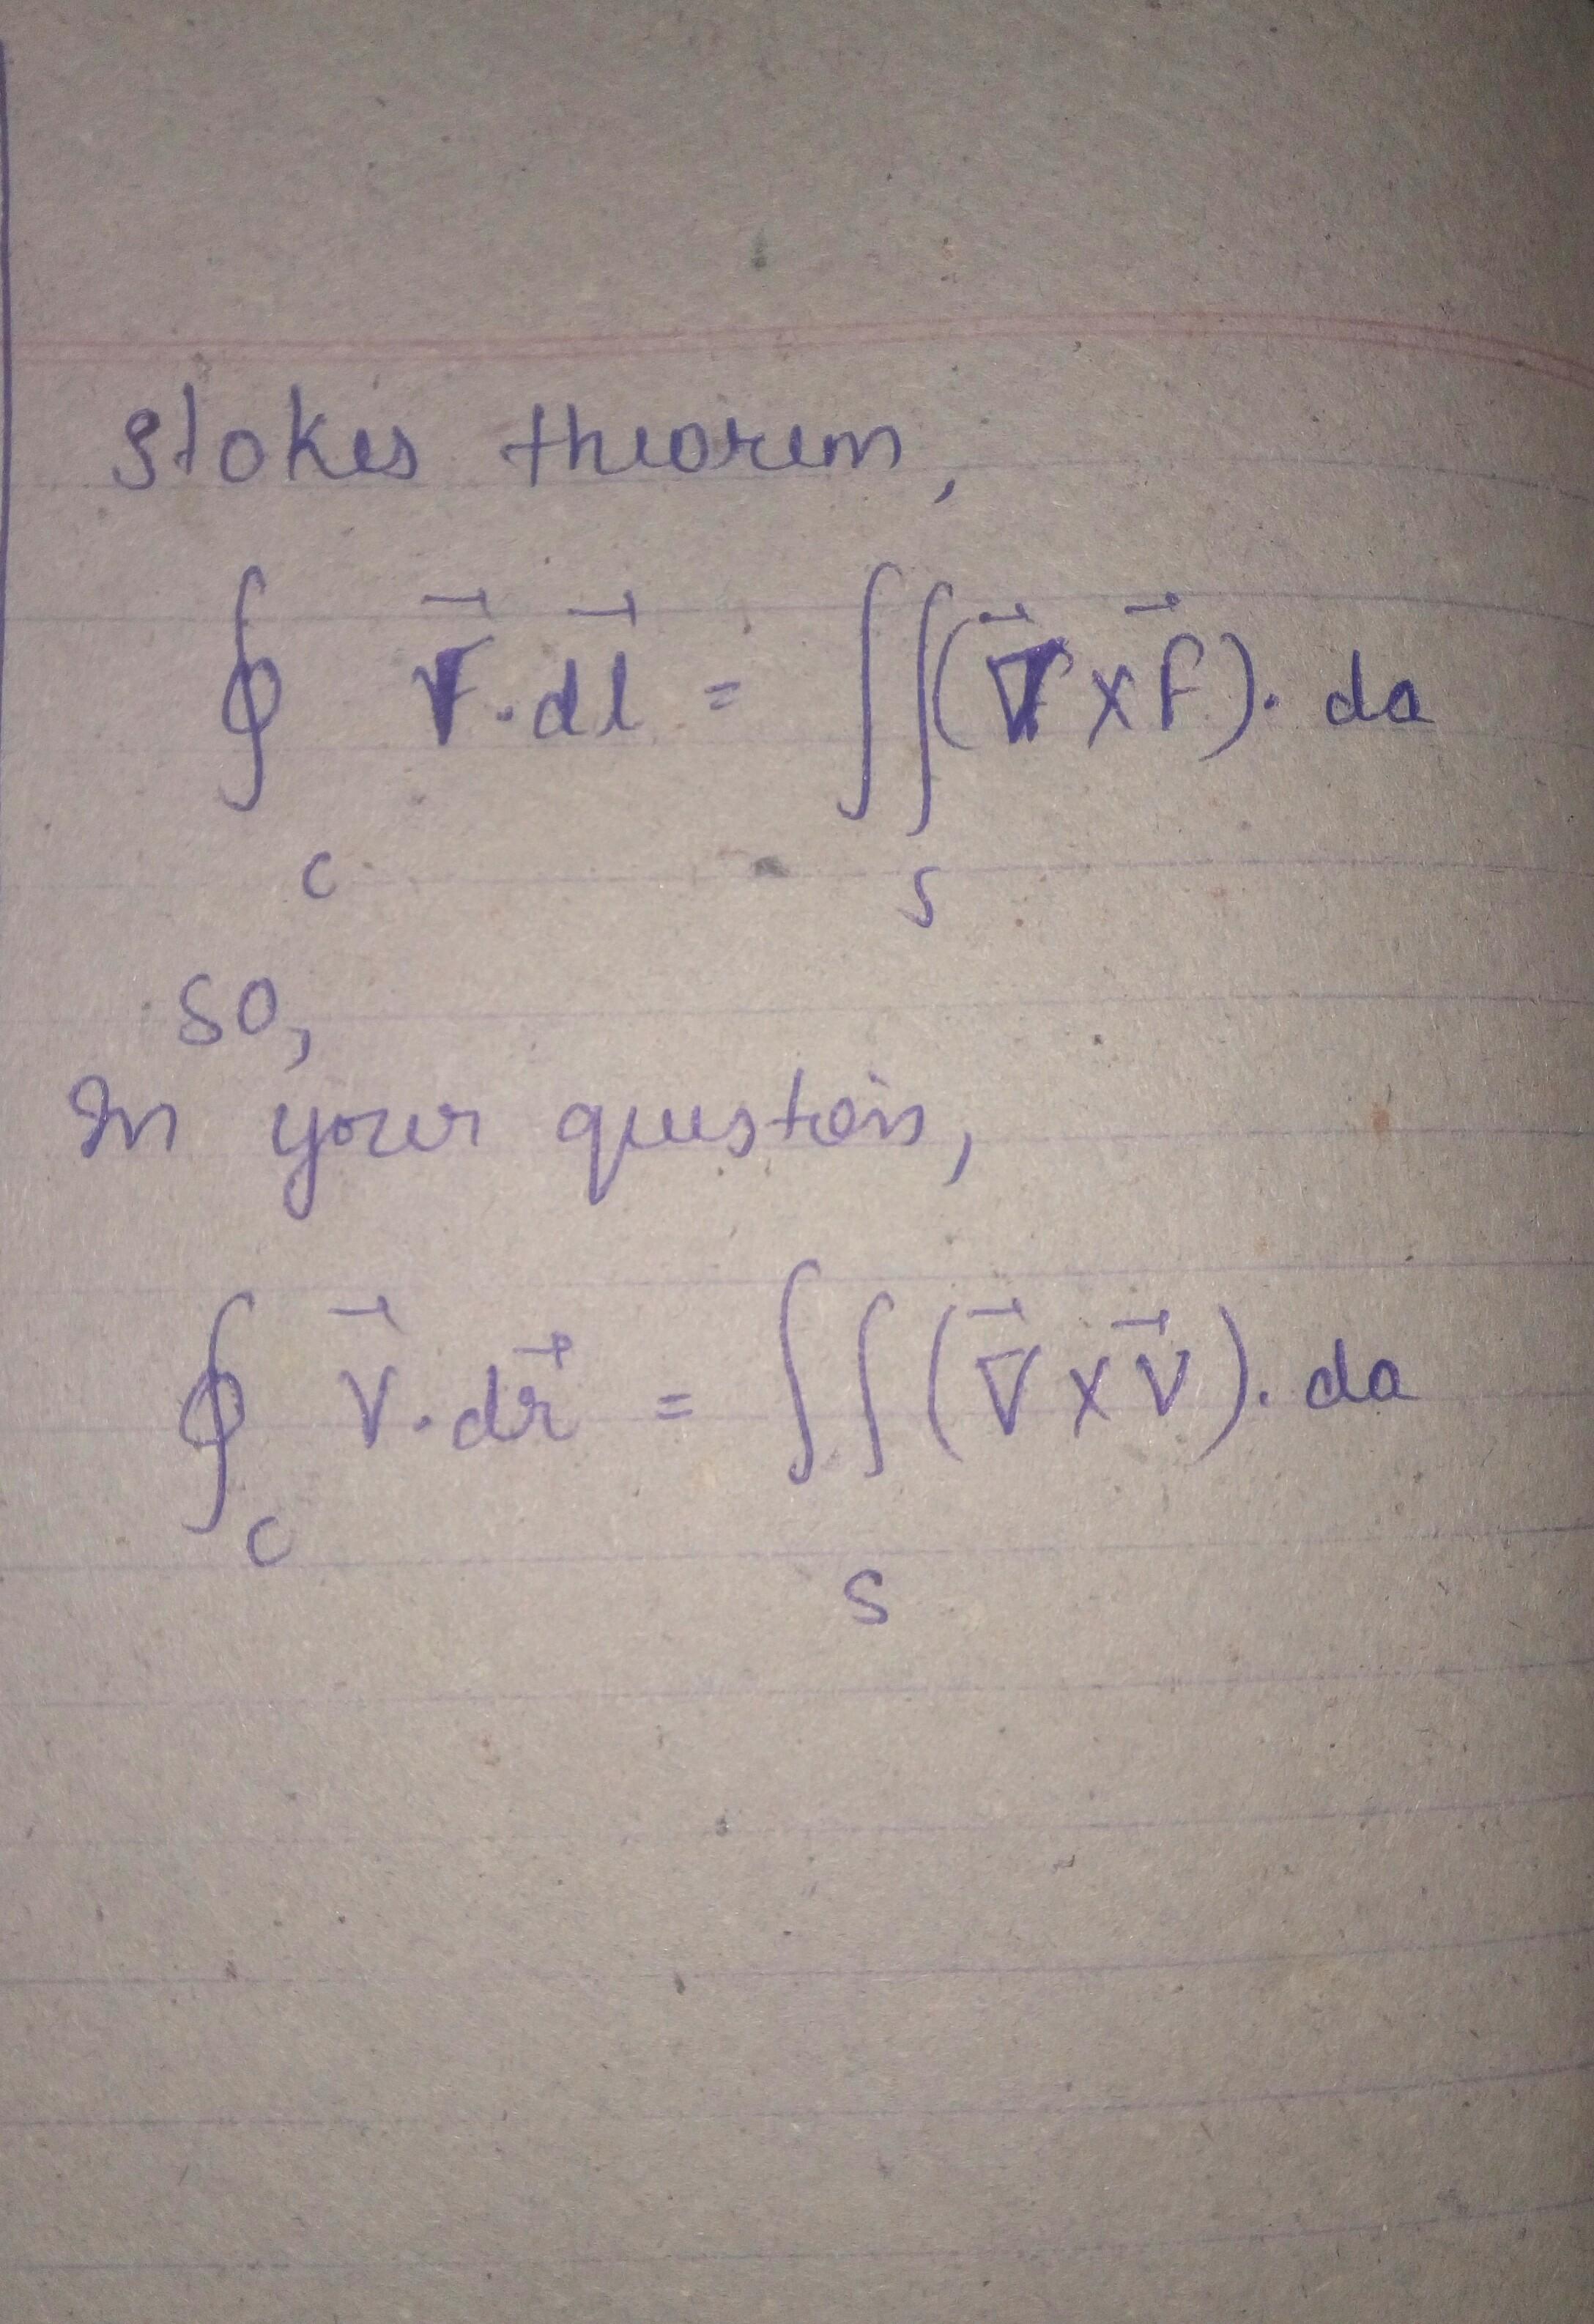 Stokes theorem,
∮ F⃗ . dl⃗ = ∬ (∇⃗ x F⃗). da
C S
SO,
In your question,
∮ V⃗ . dr⃗ = ∬ (∇⃗ x V⃗). da
C S